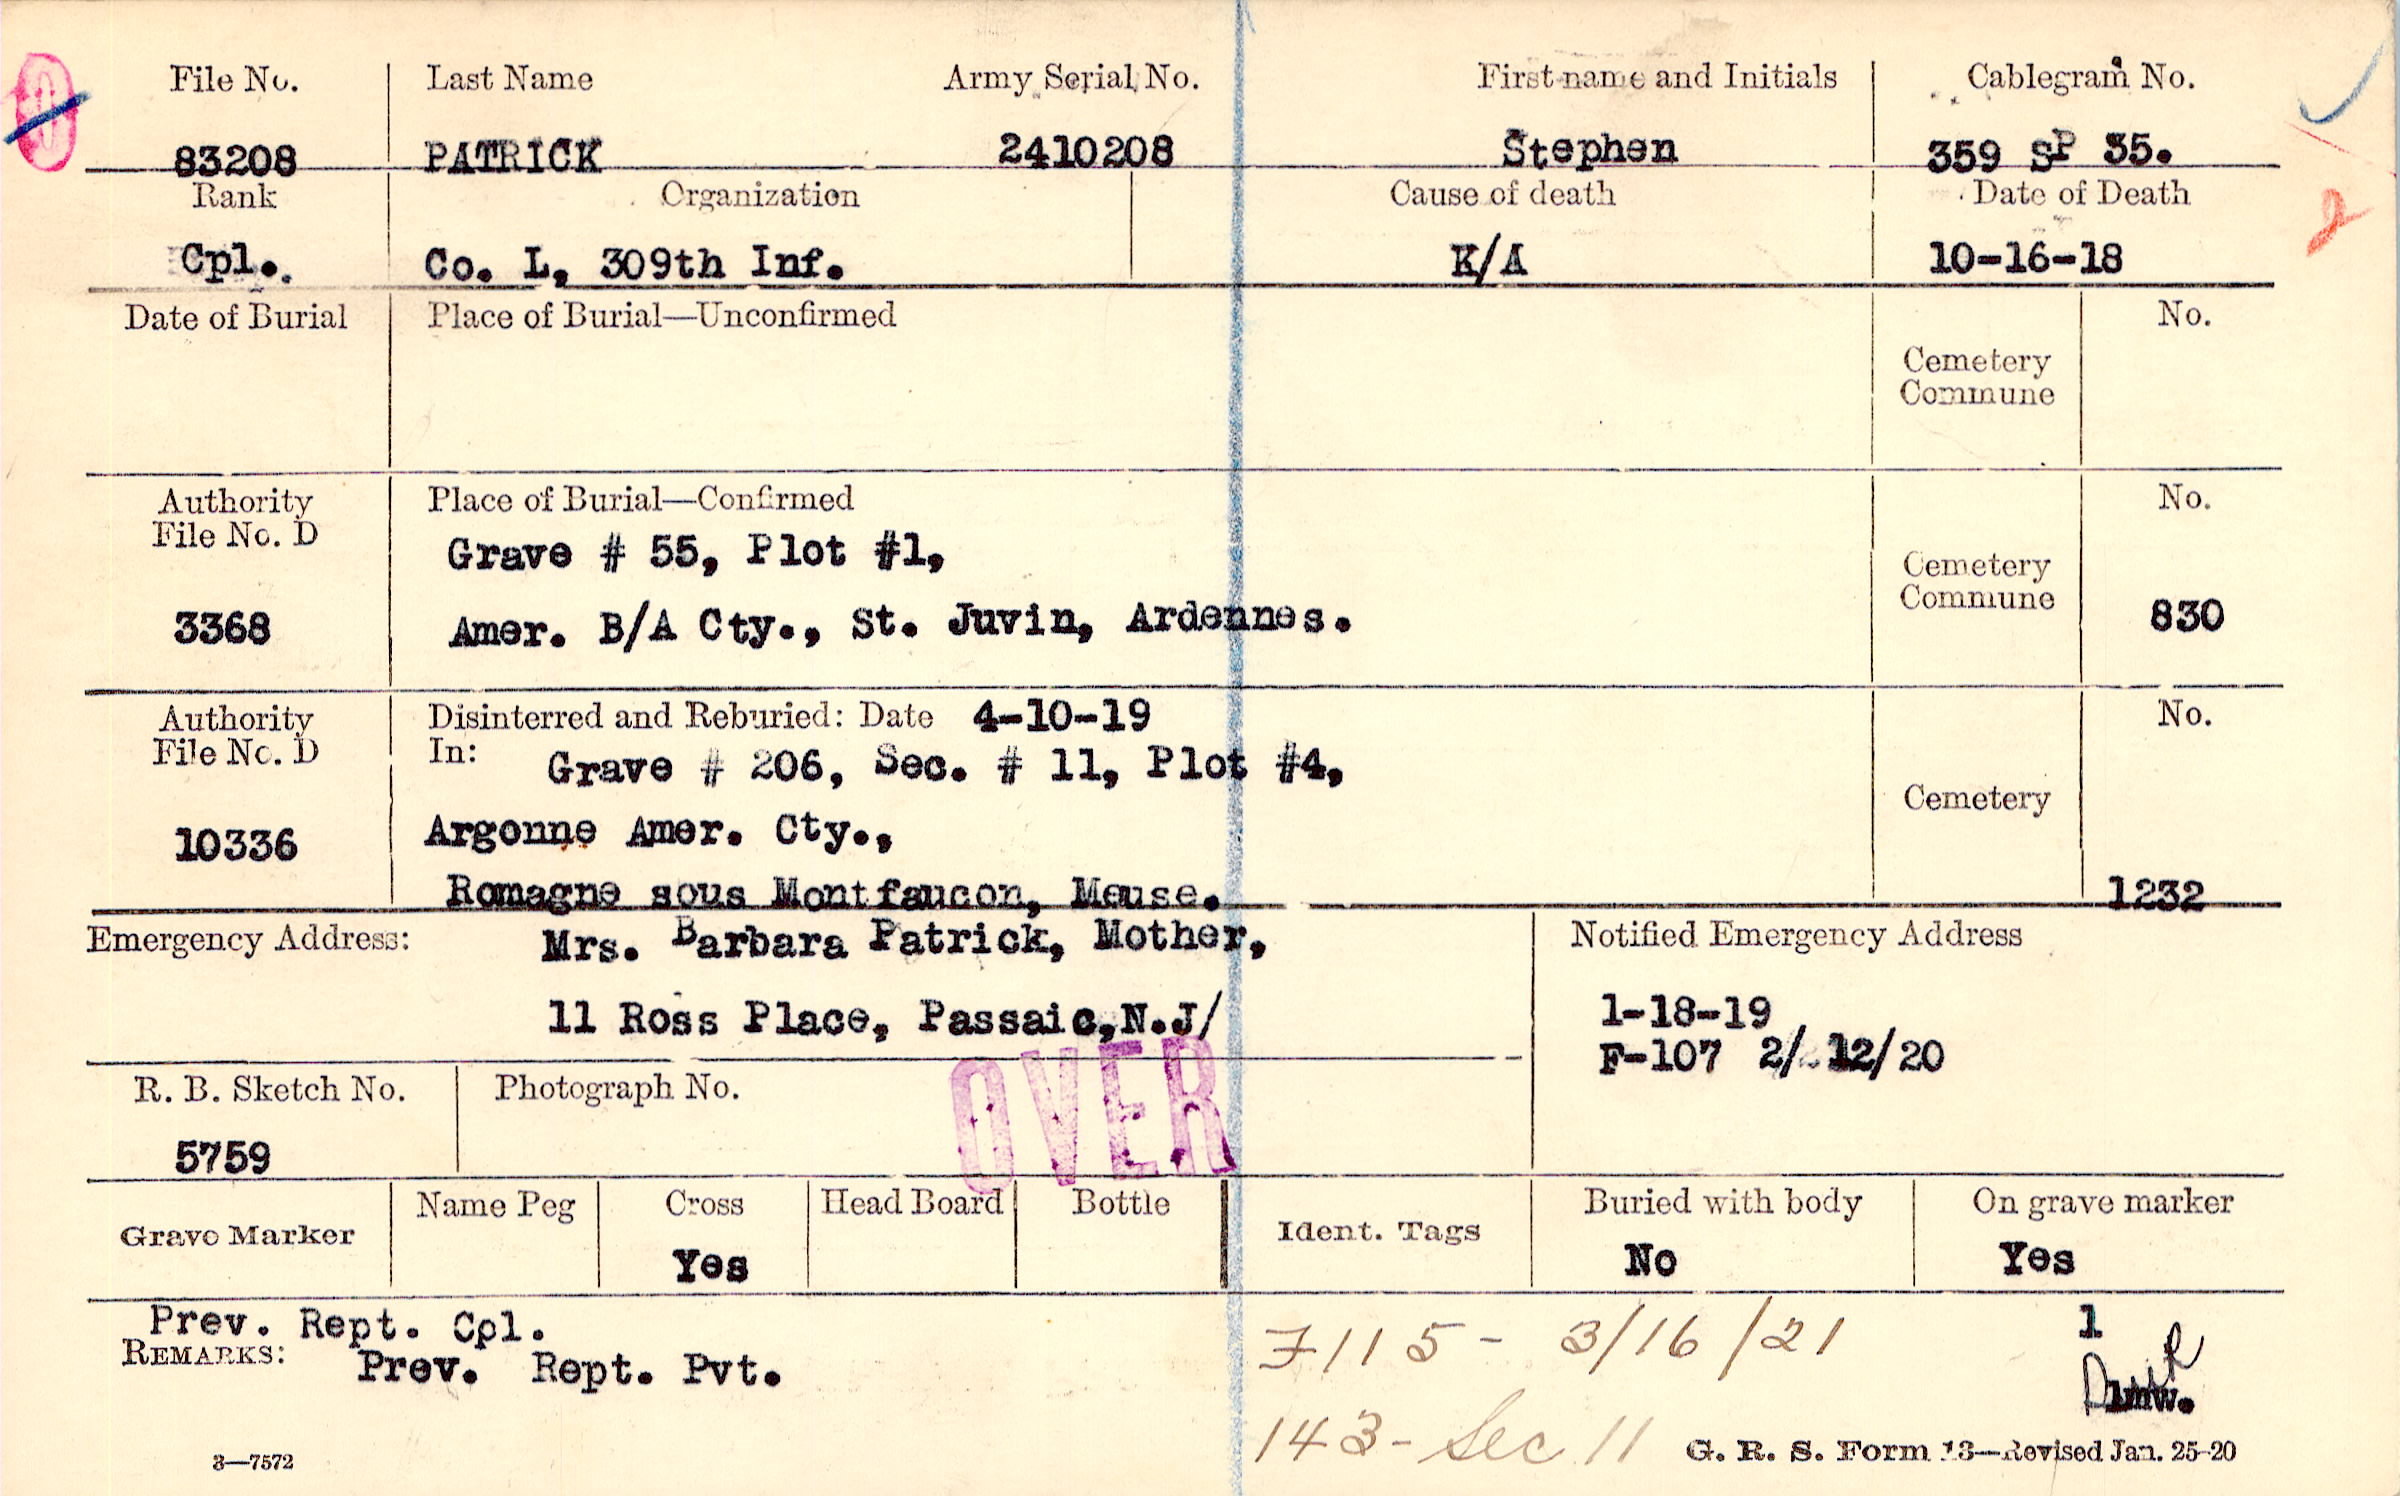 File No. Last Name Army Serial No. First name and Initials Cablegram No.
83208 PATRICK 2410208 Stephen 359 SP 35.
Rank Organization Cause of death Date of Death
Cpl. Co. L, 309th Inf. K/A 10-16-18
Date of Burial Place of Burial—Unconfirmed No.
Cemetery
Commune
Authority Place of Burial—Confirmed No.
File No. D
Grave # 55, Plot #1,
Cemetery
Commune
3368 Amer. B/A Cty., St. Juvin, Ardennes. 830
Authority Disinterred and Reburied: Date 4-10-19 No.
File No. D In: Grave # 206, Sec. # 11, Plot #4,
Cemetery
10336 Argonne Amer. Cty.,
Romagne sous Montfaucon, Meuse. 1232
Emergency Address: Mrs. Barbara Patrick, Mother, Notified Emergency Address
11 Ross Place, Passaic,N.J/ 1-18-19
F-107 2/ 12/20
OVER
R. B. Sketch No. Photograph No.
5759
Grave Marker Name Peg Cross Head Board Bottle Ident. Tags Buried with body On grave marker
Yes No Yes
Prev. Rept. Cpl. F115- 3/16/21 1
REMARKS: Prev. Rept. Pvt.
143- Sec 11
3—7572 G. R. S. Form 13—Revised Jan. 25-20
2